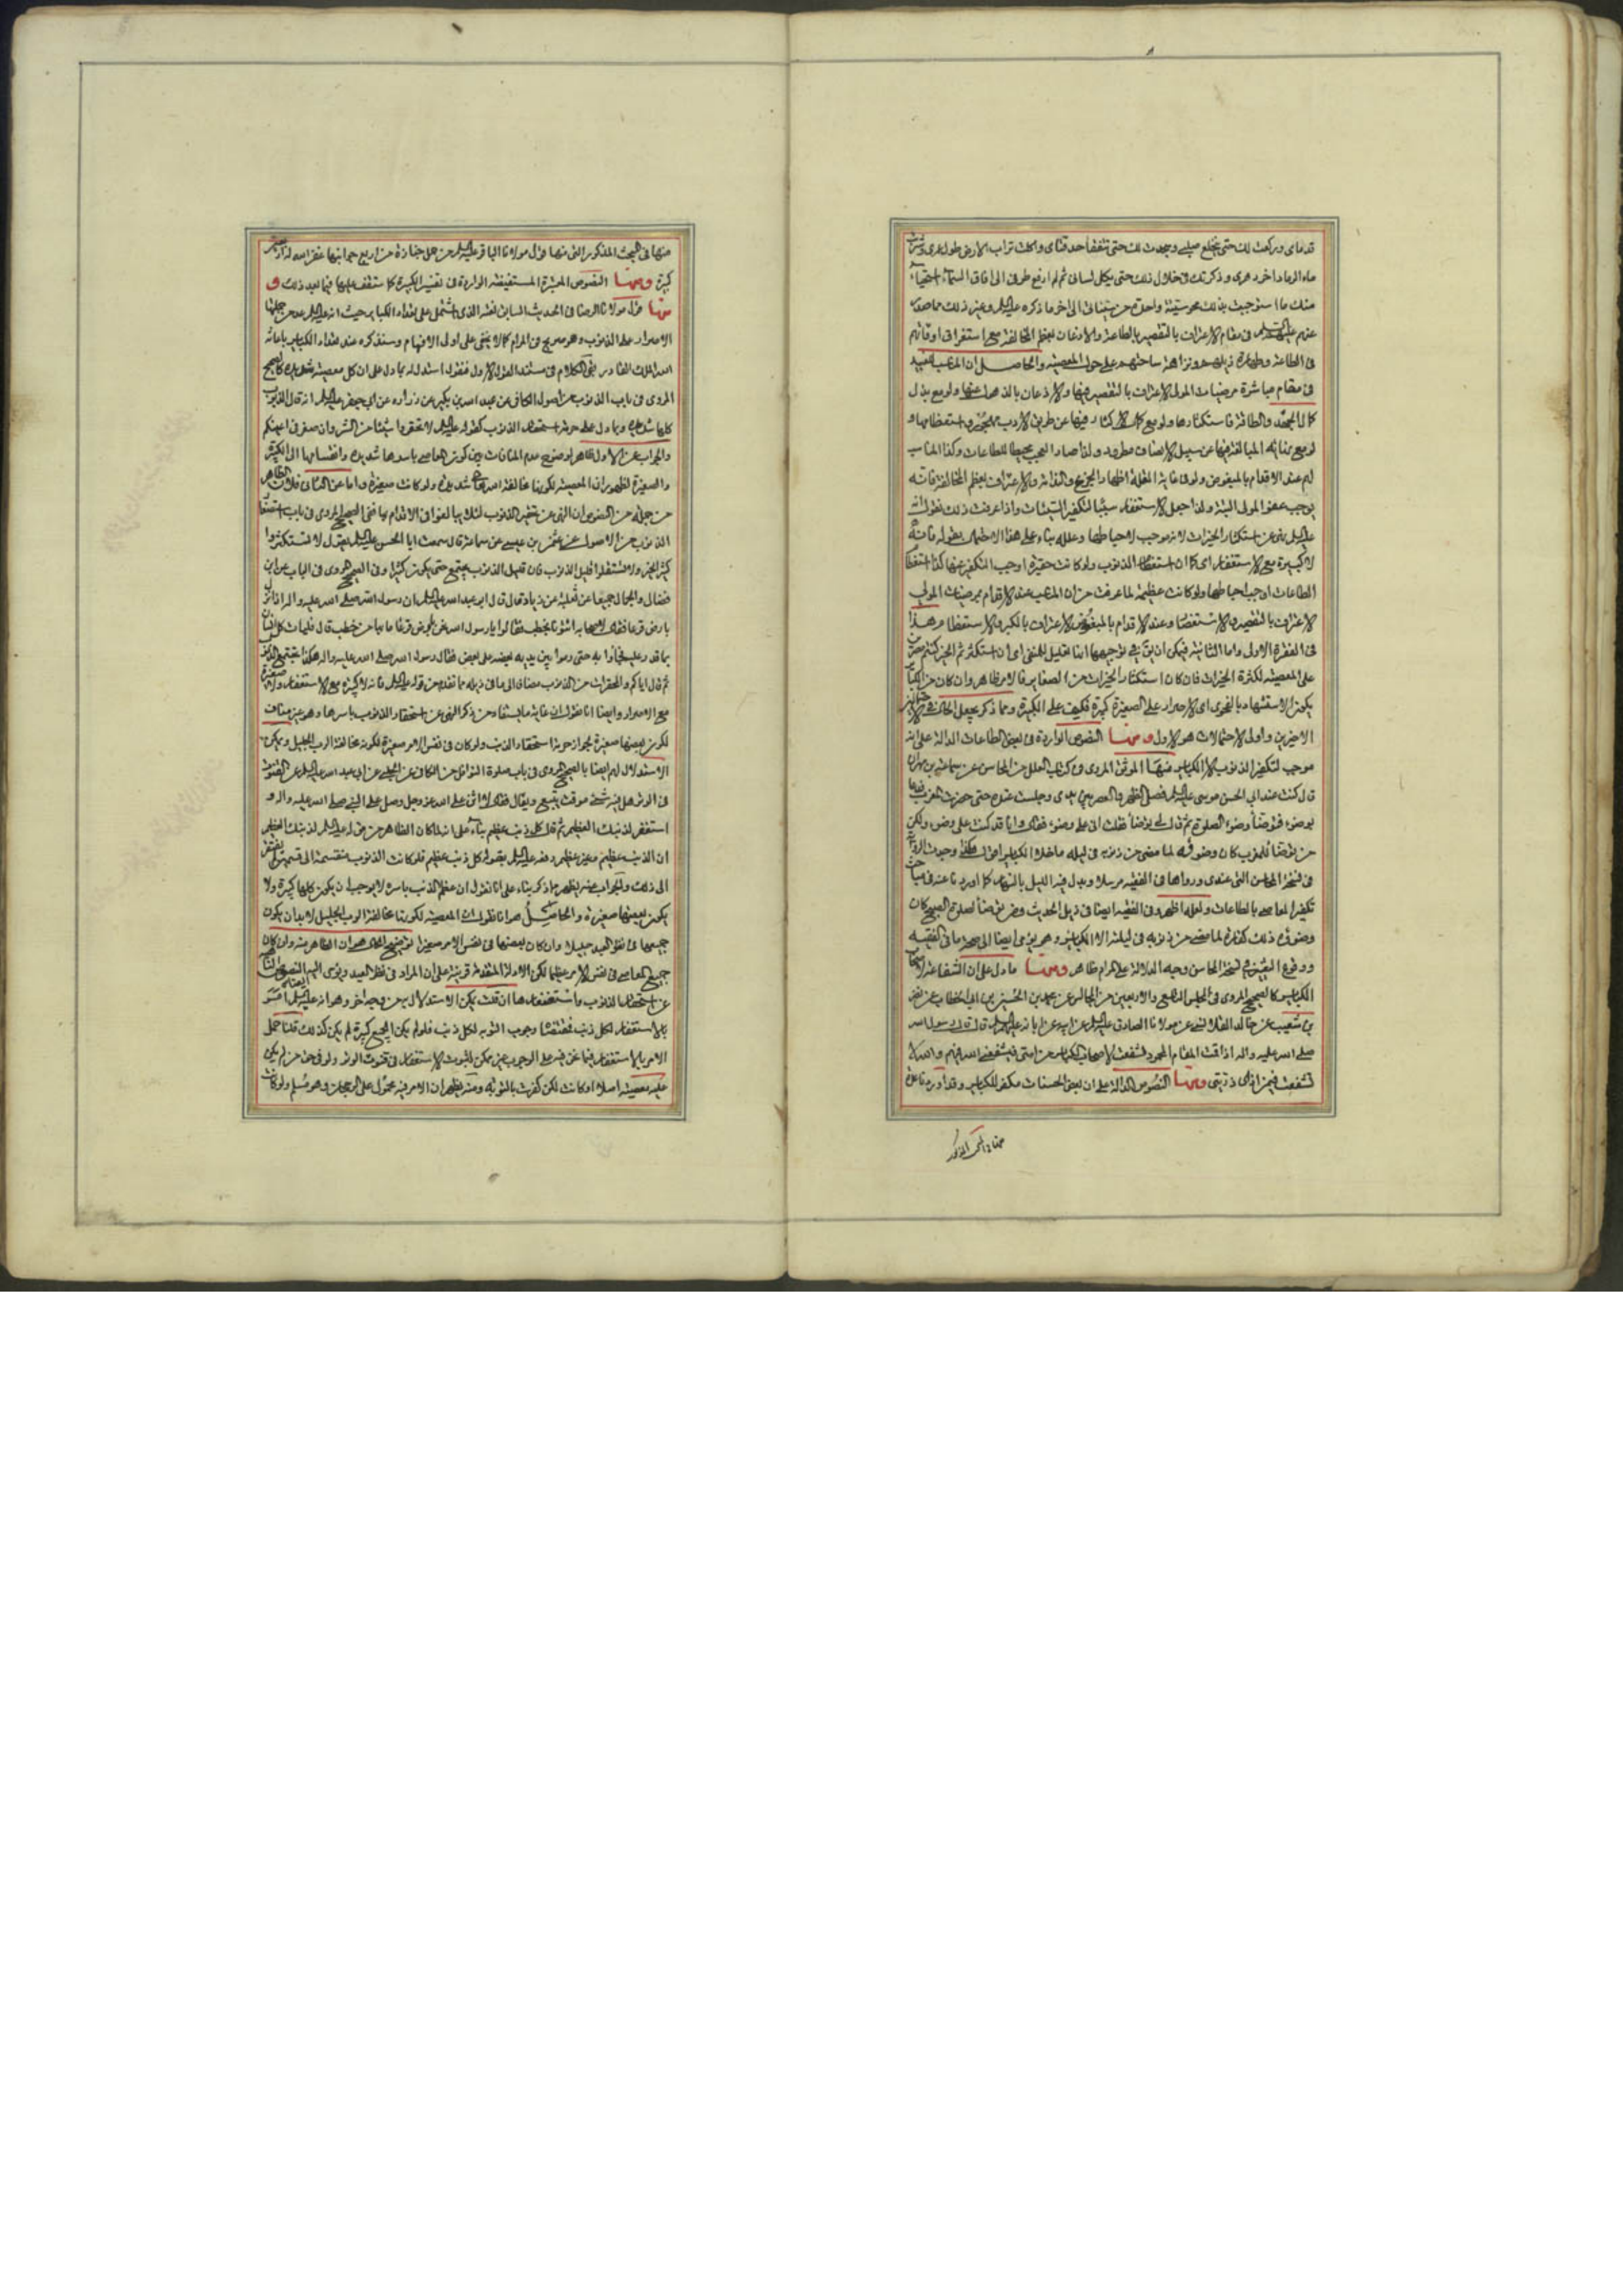 قدماي وركعت لك حتى ينخلع صلبي وسجدت لك حتى تتفقأ حدقتاي واكلت تراب الارض طول عمري وشربت
ماء الرماد اخر دهري وذكرتك في خلال ذلك حتى يكل لساني ثم لم ارفع طرفي الى افاق السماء استحياء
منك ما استوجبت بذلك محو سيئة واحدة من سيئاتي الى اخر ما ذكره عليه السلام وغير ذلك مما صدر
عنهم عليهم السلام في مقام الاعتراف بالتقصير بالطاعة والاذعان بعظم المخالفة مع استغراق اوقاتهم
في الطاعة وطهارة ذيلهم ونزاهة ساحتهم عن المعصية والحاصل ان المرغب للعبد
في مقام مباشرة مرضيات المولى الاعتراف بالتقصير فيها والاذعان بالذهول عنها ولو مع بذل
لهم عند الاقدام بالمبغوض ولو في غاية القلة اظهار الجزع والندامة والاعتراف بعظم المخالفة فانه
يوجب عفو المولى البتة ولذا جعل الاستغفار سببا لتكفير السيئات واذا عرفت ذلك نقول انه
عليه السلام نهى عن استكثار الخيرات لانه موجب لاحباطها وعلله بناء على هذا الاحتمال بقوله فانه
لا كبيرة مع الاستغفار اي كما ان استعظام الذنوب ولو كانت حقيرة اوجب التكفير عنها كذا استعظام
الطاعات اوجب احباطها ولو كانت عظيمة لما عرفت من ان المرغب عند الاقدام بمرضيات المولى
الاعتراف بالتقصير والاستنقاص وعند الاقدام بالمبغوض الاعتراف بالكبر والاستعظام هذا
في الفقرة الاولى واما الثانية فيمكن ان يق في توجيهها انها تعليل للمنفي اي ان استكثرتم الخير كنتم مصرين
على المعصية لكثرة الخيرات فان كان استكثار الخيرات من الصغاير فالامر ظاهر وان كان من الكبائر
يكون الاستشهاد بالفحوى اي الاصرار على الصغيرة كبيرة فكيف على الكبيرة ومما ذكر يعلم الحال في
الاخيرين واولى الاحتمالات هو الاول ومنها النصوص الواردة في بعض الطاعات الدالة على انه
موجب لتكفير الذنوب الا الكباير منها الموثق المروي في كتاب العلل من المحاسن عن سماعة بن مهران
قال كنت عند ابي الحسن موسى عليه السلام فصلى الظهر والعصر بين يدي وجلست عنده حتى حضرت المغرب فدعا
بوضوء فتوضأ وضوء الصلوة ثم قال لي توضأ فقلت اني على وضوء فقال وانا قد كنت على وضوء ولكن
من توضأ للمغرب كان وضوئه ذلك لما مضى من ذنوبه في ليله ما خلا الكباير اقول هكذا وجدت الرواية
في نسخة المحاسن التي عندي ورواها في الفقيه مرسلا وبدل فيه الليل بالنهار كما اوردنا عنه في مباحث
تكفير المعاصي بالطاعات ولعله اظهر وفي الفقيه ايضا في ذيل الحديث ومن توضأ لصلوة الصبح كان
وضوئه ذلك كفارة لما مضى من ذنوبه في ليلته الا الكباير وهو يومي ايضا الى صحة ما في الفقيه
ووقوع التغيير في نسخة المحاسن وجه الدلالة على المرام ظاهر ومنها ما دل على ان الشفاعة لاصحاب
الكباير كالصحيح المروي في المجلس التاسع والاربعين من المجالس عن محمد بن الحسين بن ابي الخطاب عن نضر
بن شعيب عن خالد القلانسي عن مولانا الصادق عليه السلام عن ابيه عن ابائه عليهم السلام قال قال رسول الله
صلى الله عليه واله اذا قمت المقام المحمود تشفعت لاصحاب الكباير من امتي فيشفعني الله فيهم والله لا
تشفعت فيمن اذى ذريتي ومنها النصوص الدالة على ان بعض الحسنات مكفر للكباير وقد اوردنا عدة
منها في المبحث المذكور التي منها قول مولانا الباقر عليه السلام من حمل جنازة من اربع جوانبها غفر الله له اربعين
كبيرة ومنها النصوص المعتبرة المستفيضة الواردة في تفسير الكبيرة كما ستقف عليها فيما بعد ذلك و
منها قول مولانا الرضا في الحديث السابق نقله الذي اشتمل على تعداد الكباير حيث انه عليه السلام عد من جملتها
الاصرار على الذنوب وهو صريح في المرام كما لا يخفى على اولى الافهام وسنذكره عند تعداد الكباير باعانة
الله الملك القادر بقي الكلام في مستند القول الاول فنقول استدل له بما دل على ان كل معصية شديدة كالصحيح
المروي في باب الذنوب من اصول الكافي عن عبد الله بن بكير عن زراره عن ابي جعفر عليه السلام انه قال الذنوب
كلها شديدة وبما دل على حرمة استحقار الذنوب كقوله عليه السلام لا تحقروا شيئا من الشر وان صغر في اعينكم
والجواب عن الاول ظاهر لوضوح عدم المنافات بين كون المعاصي باسرها شديدة وانقسامها الى الكبيرة
والصغيرة لظهور ان المعصية لكونها مخالفة الله تعالى شديدة ولو كانت صغيرة واما عن الثاني فلان الظاهر
من جملة من النصوص ان النهي عن تحقير الذنوب لئلا يبالغوا في الاقدام بها ففي الصحيح المروي في باب استصغار
الذنوب من الاصول عن عثمن بن عيسى عن سماعة قال سمعت ابا الحسن عليه السلام يقول لا تستكثروا
كثير الخير ولا تستقلوا قليل الذنوب فان قليل الذنوب يجتمع حتى يكون كثيرا وفي الصحيح المروي في الباب عن ابن
فضال والحجال جميعا عن ثعلبة عن زياد قال قال ابو عبد الله عليه السلام ان رسول الله صلى الله عليه واله نزل
بارض قرعا فقال لاصحابه ائتونا بحطب فقالوا يا رسول الله نحن بارض قرعا ما بها من حطب قال فليات كل انسان
بما قدر عليه فجاؤا به حتى رموا بين يديه بعضه على بعض فقال رسول الله صلى الله عليه واله هكذا تجتمع الذنوب
ثم قال اياكم والمحقرات من الذنوب مضافا الى ما في ذيله مما تقدم من قوله عليه السلام فانه لا كبيرة مع الاستغفار ولا صغيرة
مع الاصرار وايضا انا نقول ان غاية ما يستفاد من ذكر النهي عن استحقار الذنوب باسرها وهو غير مناف
لكون بعضها صغيرة لجواز حرمة استحقار الذنب ولو كان في نفس الامر صغيرة لكونه مخالفة الرب الجليل ويمكن
الاستدلال لهم ايضا بالصحيح المروي في باب صلوة النوافل من الكافي عن الحلبي عن ابي عبد الله عليه السلام عن القنوت
في الوتر هل فيه شئ موقت يتبع ويقال فقال لا اثن على الله عز وجل وصل على النبي صلى الله عليه واله و
استغفر لذنبك العظيم ثم قال كل ذنب عظيم بناء على انه لما كان الظاهر من قوله عليه السلام لذنبك العظيم
ان الذنب عظيم وغير عظيم دفعه عليه السلام بقوله كل ذنب عظيم فلو كانت الذنوب منقسمة الى قسمين لم يفتقر
الى ذلك والجواب عنه يظهر مما ذكر بناء على انا نقول ان عظم الذنب باسره لا يوجب ان يكون كلها كبيرة ولا
يكون بعضها صغيرة والحاصل هو انا نقول ان المعصية لكونها مخالفة الرب الجليل لا بد ان يكون
جميعها في نظر العبد جليلا وان كان بعضها في نفس الامر صغيرا
جميع المعاصي في نفس الامر عظيما لكن الادلة المتقدمة قرينة على ان المراد في نظر العبد ويومي اليه النصوص الناهية
عن استحقار الذنوب واستصغارها ان قلت يمكن الاستدلال به من وجه اخر وهو انه عليه السلام امر
بالاستغفار لكل ذنب فمقتضاه وجوب التوبة لكل ذنب فلو لم يكن الجميع كبيرة لم يكن كذلك قلنا حمل
الامر بالاستغفار فيما نحن فيه على الوجوب غير ممكن لثبوت الاستغفار في قنوت الوتر ولو في حق من لم يكن
عليه معصية اصلا او كانت لكن كفرت بالتوبة ومنه يظهر ان الامر فيه محمول على الرجحان وهو مسلم ولو كانت